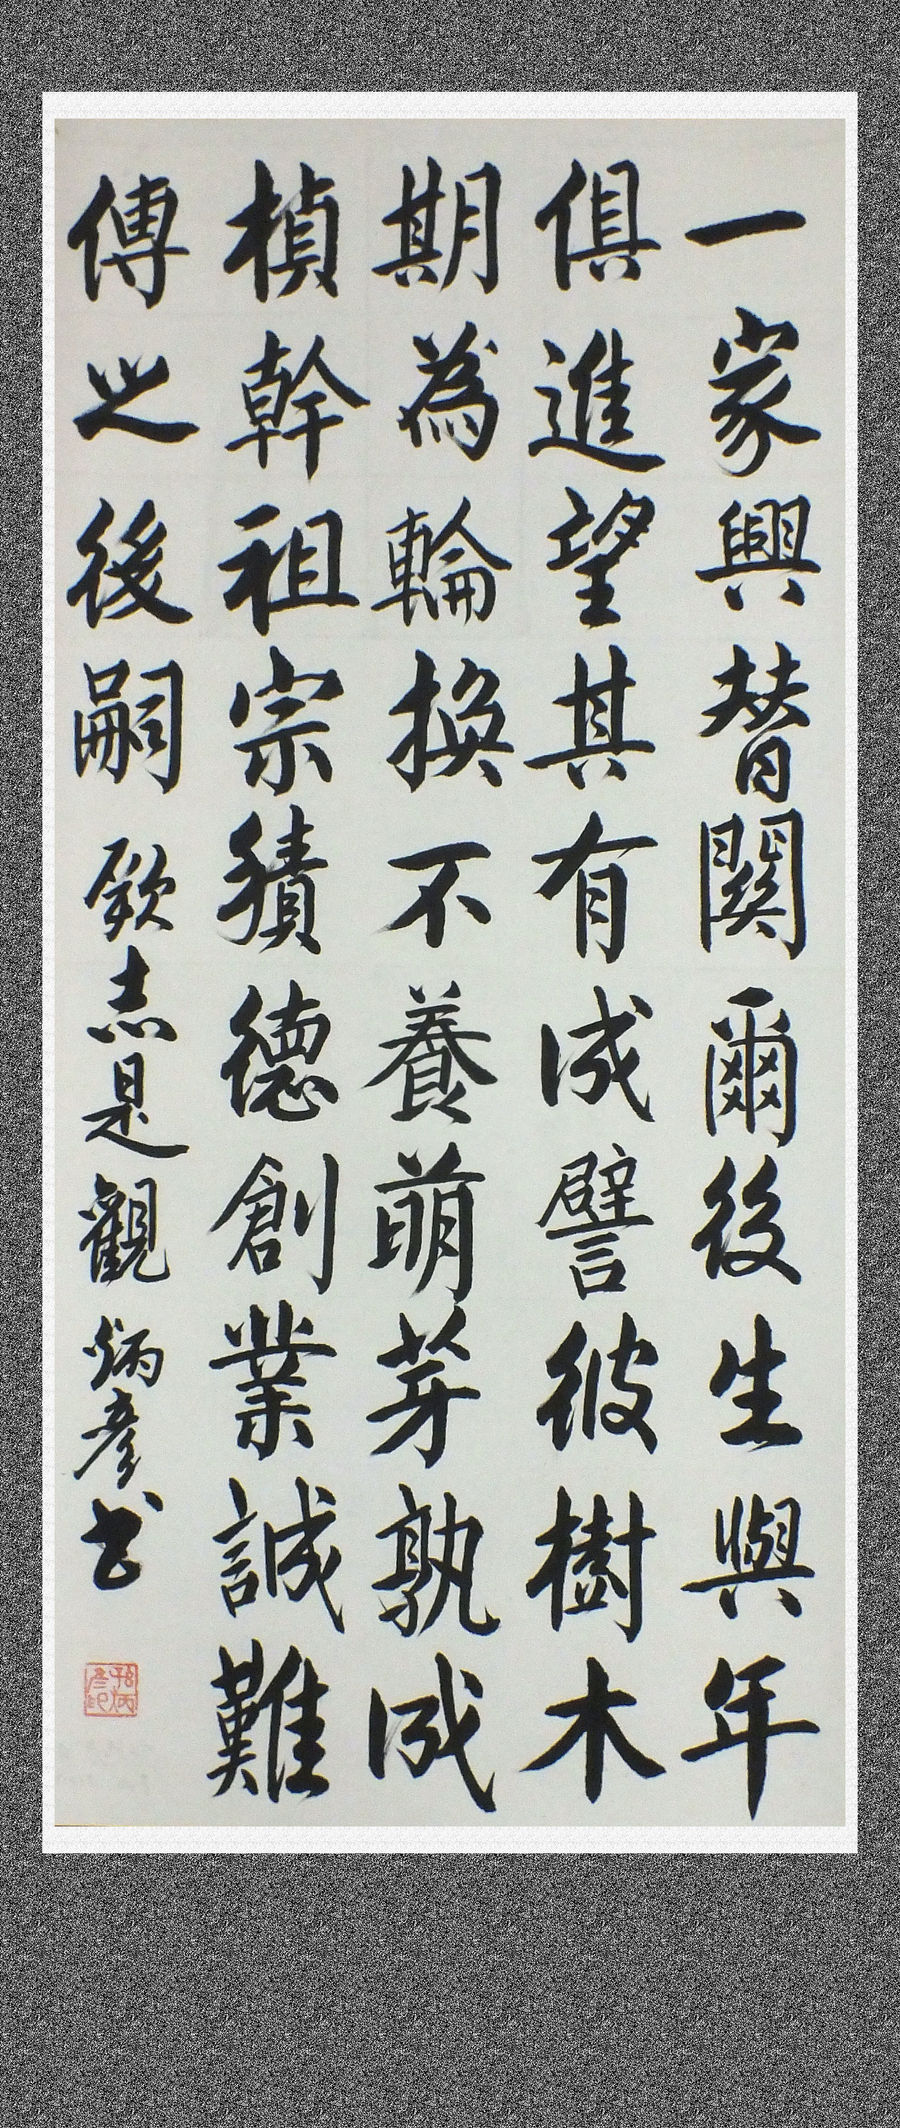 一家興替關爾後生與年
俱進望其有成譬彼樹木
期為輪換不養萌芽孰成
楨幹祖宗積德創業誠難
傳之後嗣 欽志是觀 炳彥书